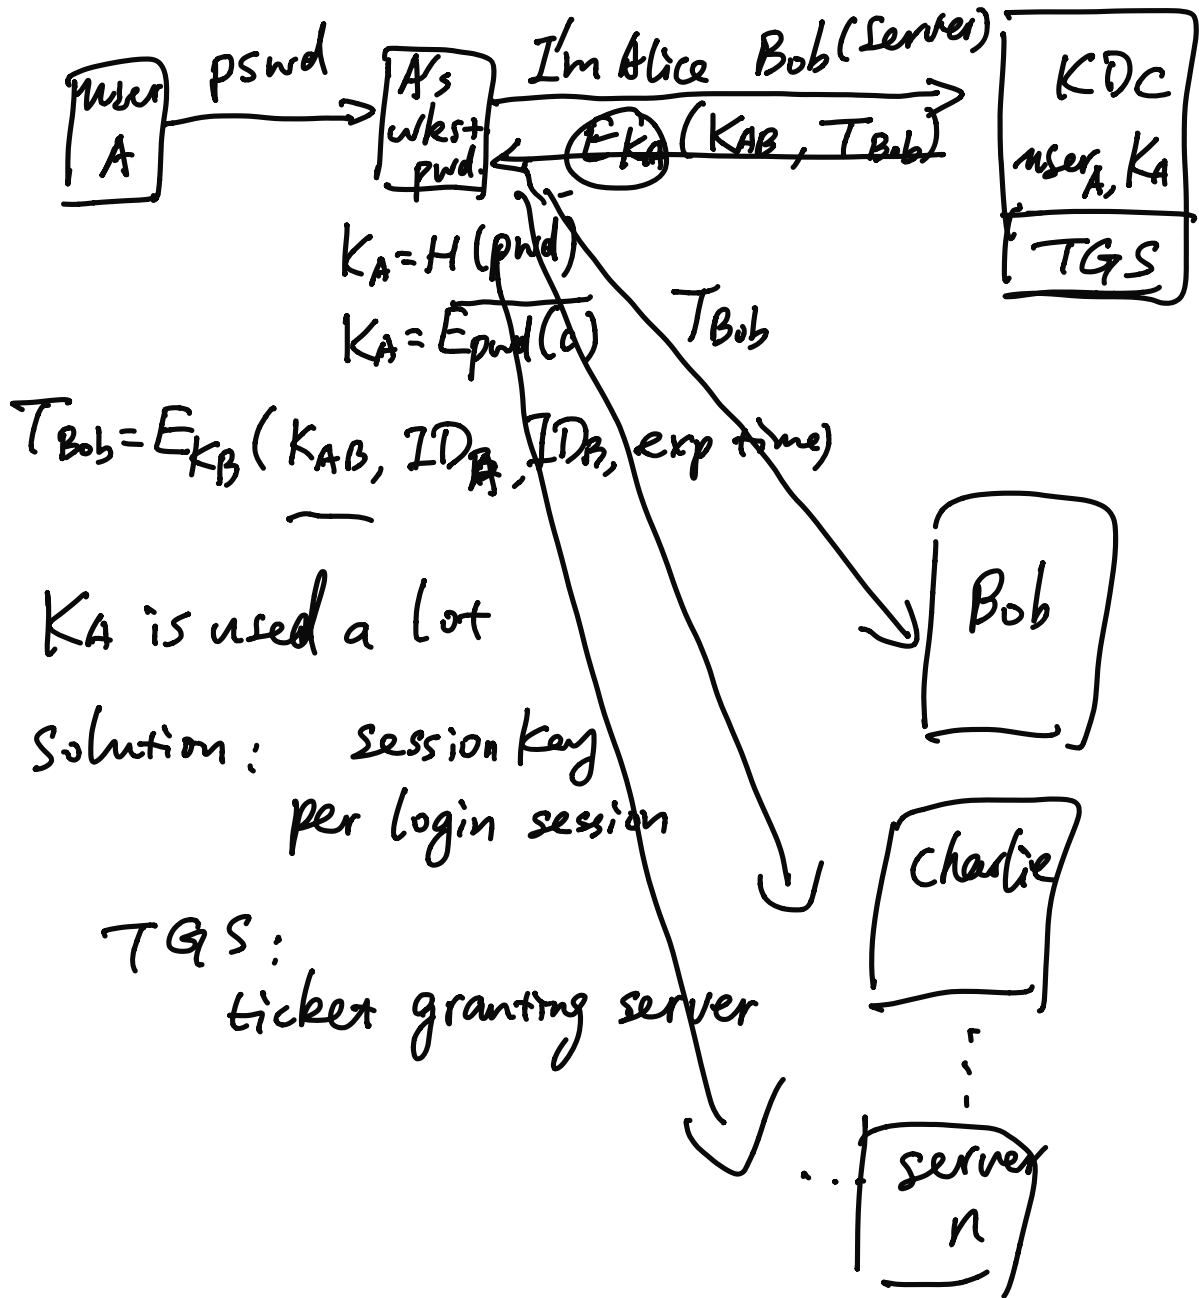 user
A
pswd
A's
wkst
pwd
I'm Alice Bob (Server)
E_{K_A} (K_{AB}, T_{Bob})
KDC
user_A, K_A
TGS
K_A = H(pwd)
K_A = E_{pwd}(0)
T_{Bob}
T_{Bob} = E_{K_B} (K_{AB}, ID_A, ID_B, exp time)
Bob
K_A is used a lot
solution: session key
per login session
Charlie
TGS:
ticket granting server
server
n